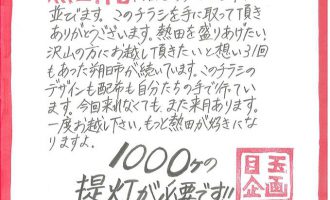 並びます。このチラシを手に取って頂き
ありがとうございます。熱田を盛りあげたい、
沢山の方にお越し頂きたいと想い31回
もあった朔日市が続いています。このチラシの
デザインも配布も自分たちの手で作ってい
ます。今回来れなくても、また来月あります。
一度お越し下さい。もっと熱田が好きにな
りますよ。
1000ヶの
提灯が必要です!!
目玉
企画